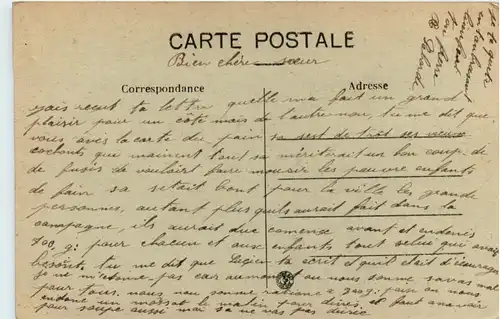 CARTE POSTALE
Bien chère sœur
Correspondance
Adresse
jais recut ta lettre quelle ma fait un grand
plaisir pour un côté mais de l'autre non, tu me dit que
vous avès la carte du pain sa sert de trôt ses vieux
cochonts que mainent tout sa mériterait un bon coup de
de fusis de vouloirt faire mourir les pauvre enfants
de faim sa sétait bont pour la ville les grande
personnes, autant plus quils aurait fait dans la
campagne, ils aurait due comence avant et endonés
700 g: pour chacun et aux enfants tout celui que avait
besoint, tu me dit que la écrit d quil était d'
je ne m'étonne pas car au on nous donne sa vas mal
pour tous, nous nou somme ratione a 300g: pain on nous
endone un morsat le matin pour dires, et faut anavoir
pour soupe aussi mai sa ne vas pas durée